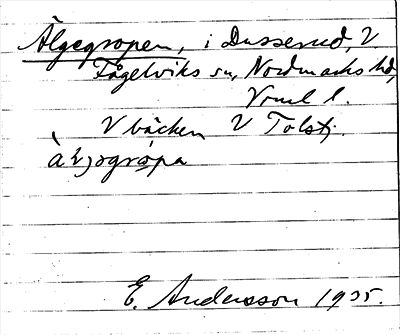 Älgegropen, i Dusserud, V
Fågelviks sn, Nordmarks hd,
Vrml l.
V bäcken V Tolstj.
àlʒəgròpa
E. Andersson 1935.